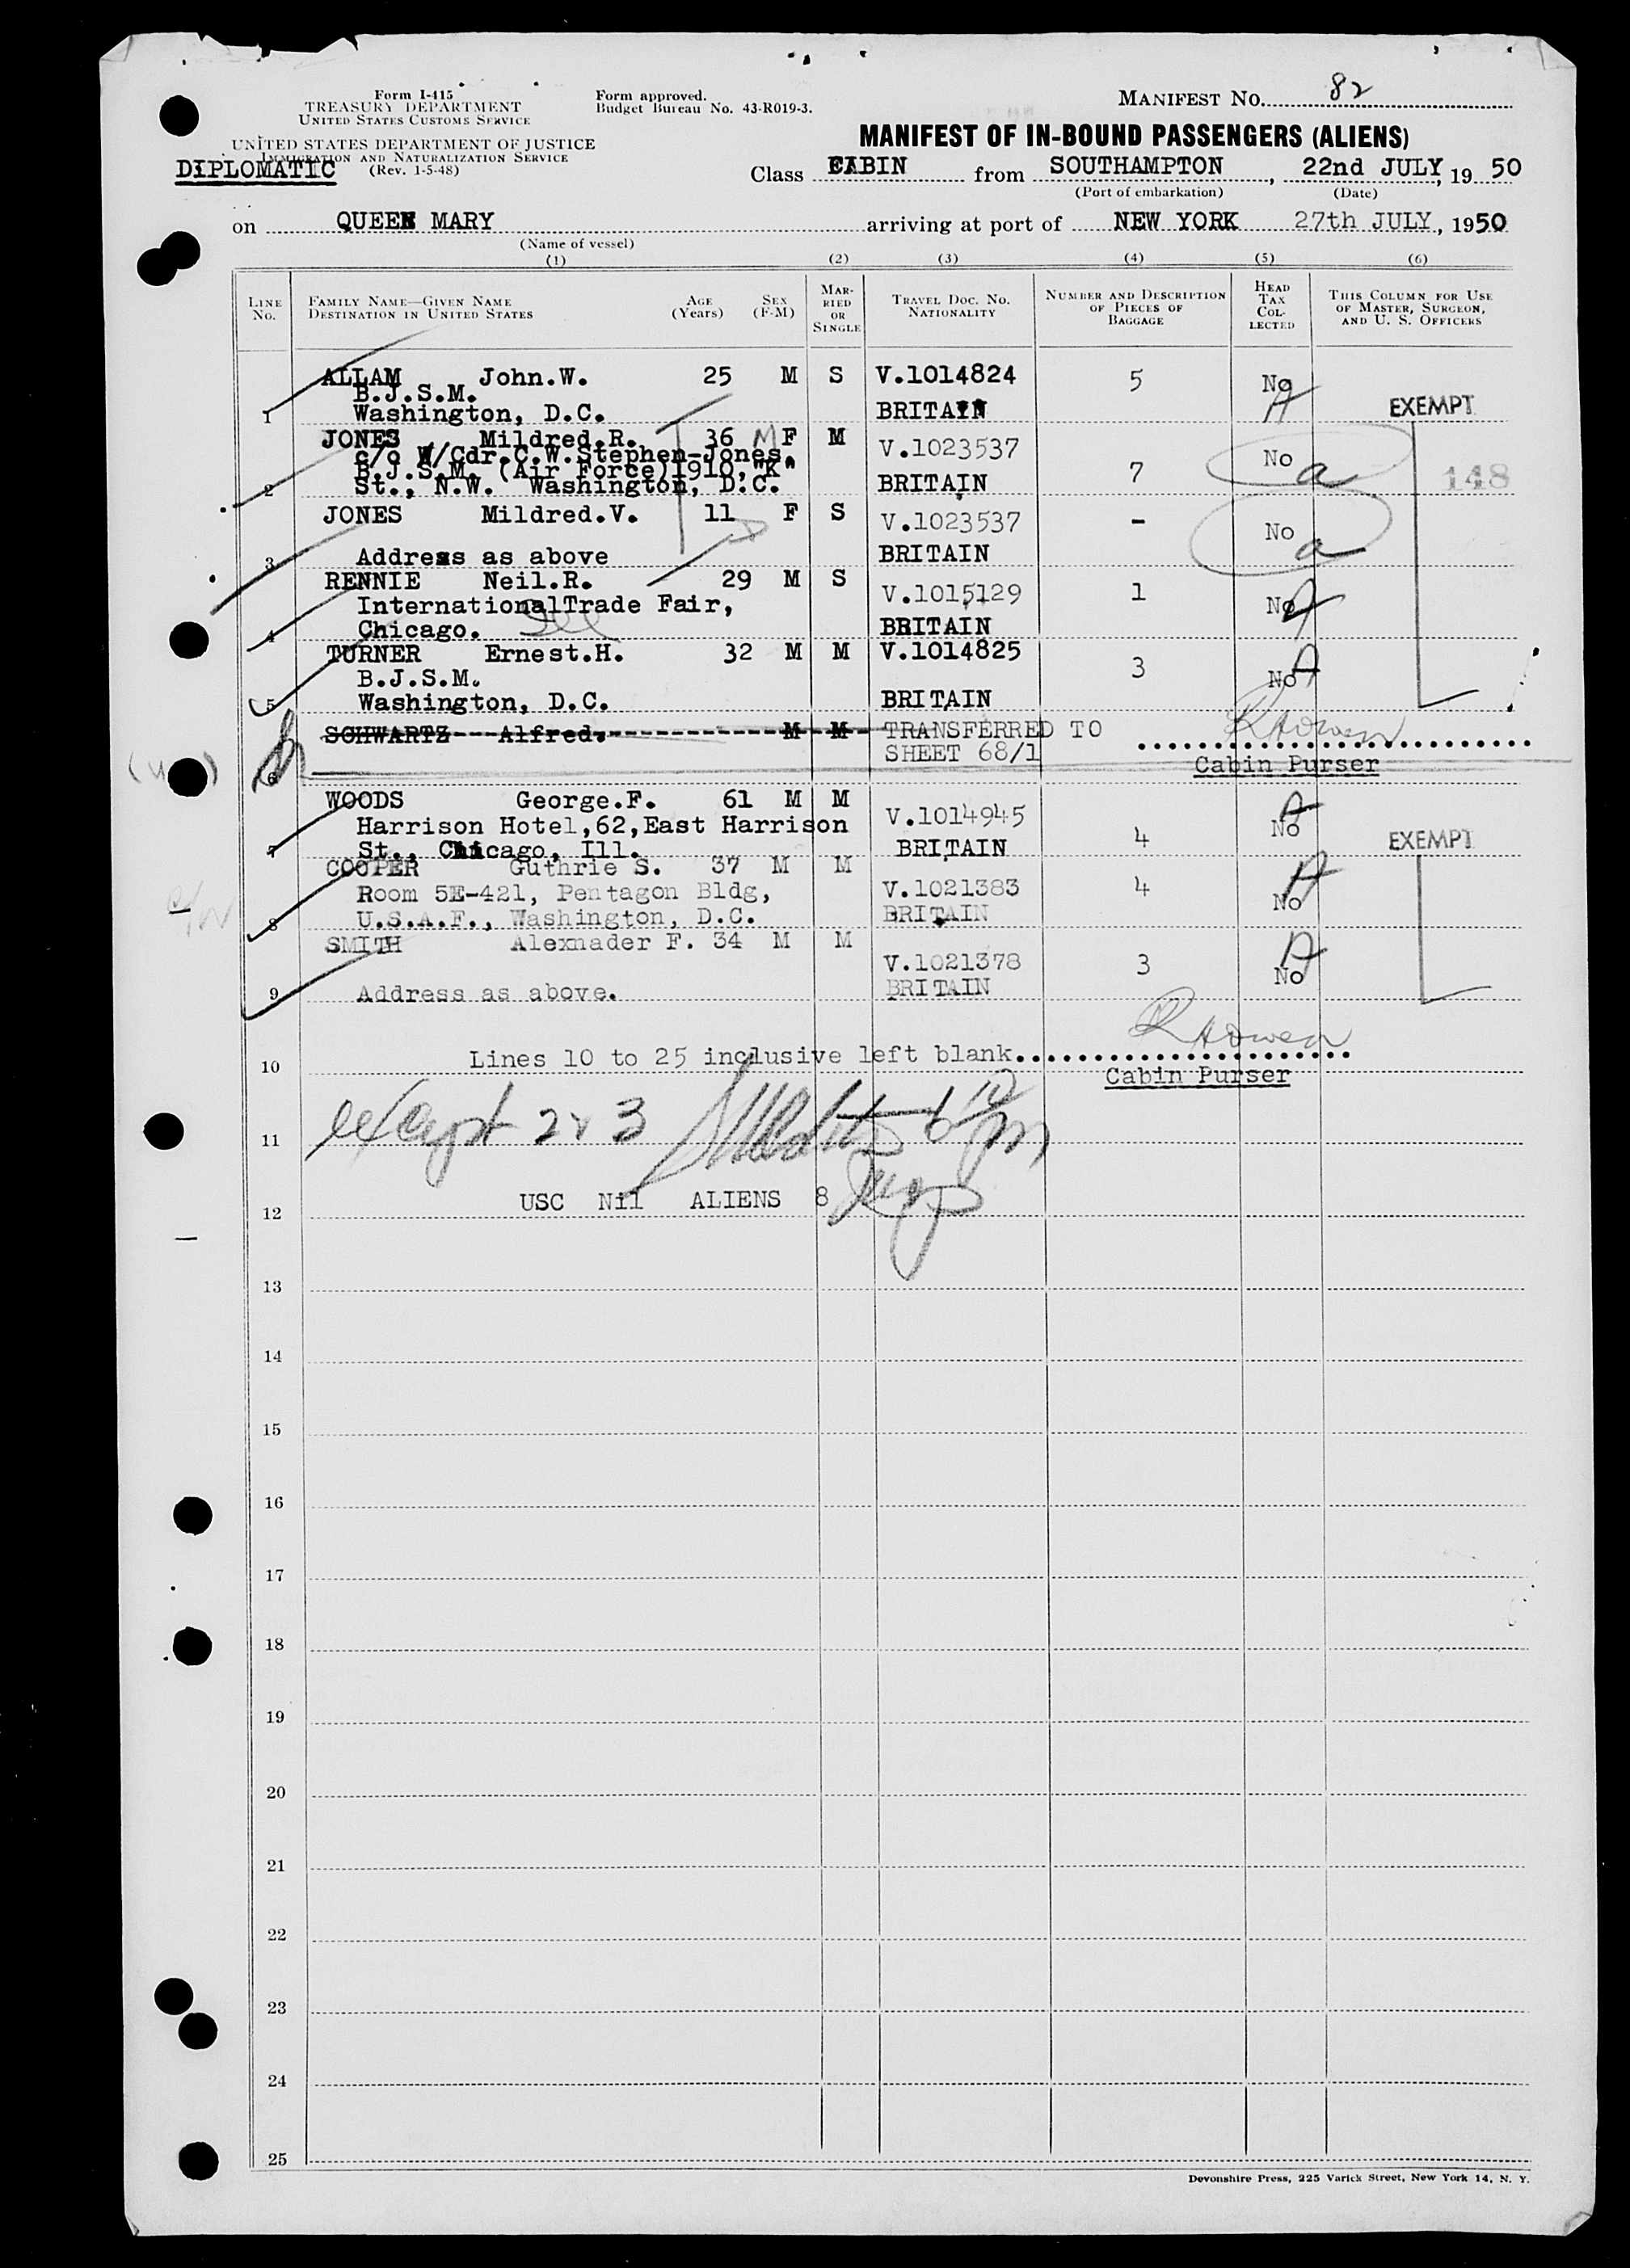 Form I-415
TREASURY DEPARTMENT
UNITED STATES CUSTOMS SERVICE
UNITED STATES DEPARTMENT OF JUSTICE
IMMIGRATION AND NATURALIZATION SERVICE
(Rev. 1-5-48)
DIPLOMATIC
Form approved.
Budget Bureau No. 43-R019-3.
MANIFEST NO. 82
MANIFEST OF IN-BOUND PASSENGERS (ALIENS)
Class CABIN from SOUTHAMPTON, 22nd JULY, 19 50
(Port of embarkation) (Date)
on QUEEN MARY arriving at port of NEW YORK 27th JULY, 1950
(Name of vessel)
(1) (2) (3) (4) (5) (6)
LINE No. FAMILY NAME—GIVEN NAME DESTINATION IN UNITED STATES AGE (Years) SEX (F-M) MARRIED OR SINGLE TRAVEL DOC. NO. NATIONALITY NUMBER AND DESCRIPTION OF PIECES OF BAGGAGE HEAD TAX COLLECTED THIS COLUMN FOR USE OF MASTER, SURGEON, AND U. S. OFFICERS
ALLAM John.W. 25 M S V.1014824 5 No A
B.J.S.M.
1 Washington, D.C. BRITAIN EXEMPT
JONES Mildred.R. 36 M F M V.1023537 No a
c/o W/Cdr.C.W.Stephen-Jones,
B.J.S.M. (Air Force)1910,"K" 7 148
2 St., N.W. Washington, D.C. BRITAIN
JONES Mildred.V. 11 F S V.1023537 - No a
3 Address as above BRITAIN
RENNIE Neil.R. 29 M S V.1015129 1 No A
InternationalTrade Fair,
4 Chicago. Ill BRITAIN
TURNER Ernest.H. 32 M M V.1014825 3 No A
B.J.S.M.
5 Washington, D.C. BRITAIN
SCHWARTZ Alfred. M M TRANSFERRED TO
SHEET 68/1
6 Cabin Purser
WOODS George.F. 61 M M V.1014945 4 No A
Harrison Hotel,62,East Harrison
7 St., Chicago, Ill. BRITAIN EXEMPT
COOPER Guthrie S. 37 M M V.1021383 4 No A
Room 5E-421, Pentagon Bldg,
8 U.S.A.F., Washington, D.C. BRITAIN
SMITH Alexnader F. 34 M M V.1021378 3 No A
9 Address as above. BRITAIN
10 Lines 10 to 25 inclusive left blank
Cabin Purser
11 except 2 & 3
12 USC Nil ALIENS 8
13
14
15
16
17
18
19
20
21
22
23
24
25
Devonshire Press, 225 Varick Street, New York 14, N. Y.